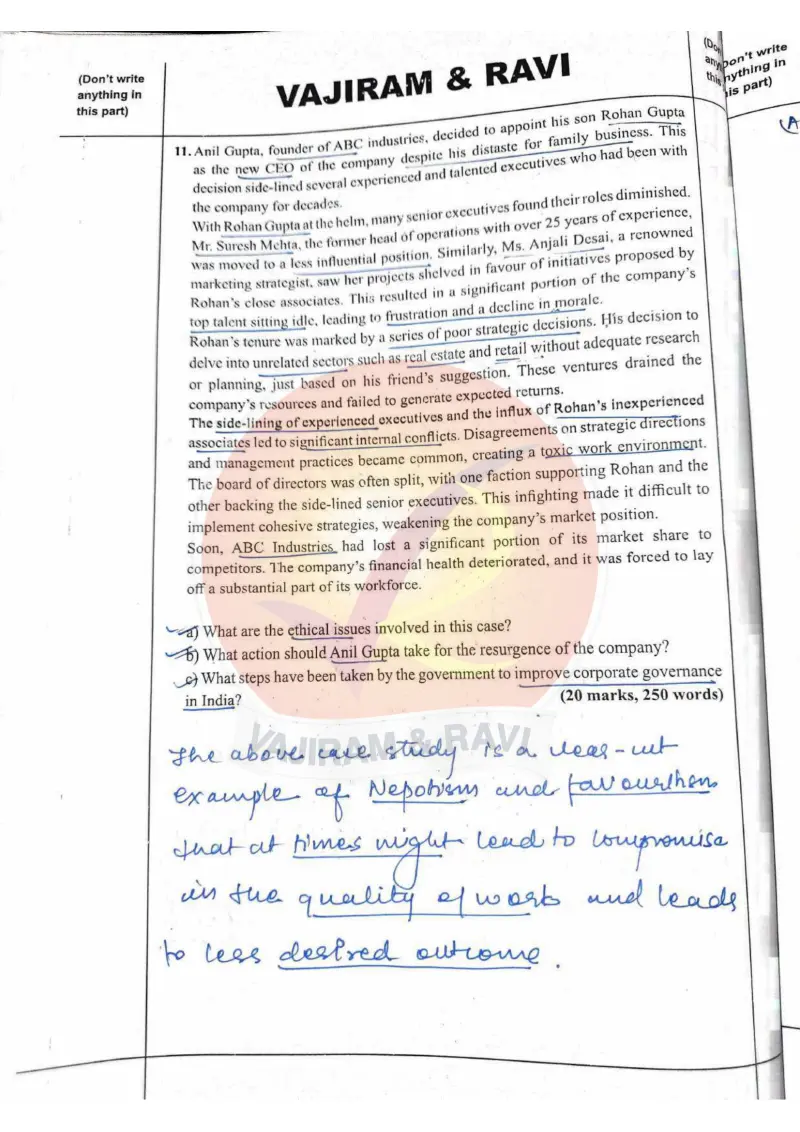 (Don't write
anything in
this part)
VAJIRAM & RAVI
(Don't write
anything in
this part)
11. Anil Gupta, founder of ABC industries, decided to appoint his son Rohan Gupta
as the new CEO of the company despite his distaste for family business. This
decision side-lined several experienced and talented executives who had been with
the company for decades.
With Rohan Gupta at the helm, many senior executives found their roles diminished.
Mr. Suresh Mehta, the former head of operations with over 25 years of experience,
was moved to a less influential position. Similarly, Ms. Anjali Desai, a renowned
marketing strategist, saw her projects shelved in favour of initiatives proposed by
Rohan's close associates. This resulted in a significant portion of the company's
top talent sitting idle, leading to frustration and a decline in morale.
Rohan's tenure was marked by a series of poor strategic decisions. His decision to
delve into unrelated sectors such as real estate and retail without adequate research
or planning, just based on his friend's suggestion. These ventures drained the
company's resources and failed to generate expected returns.
The side-lining of experienced executives and the influx of Rohan's inexperienced
associates led to significant internal conflicts. Disagreements on strategic directions
and management practices became common, creating a toxic work environment.
The board of directors was often split, with one faction supporting Rohan and the
other backing the side-lined senior executives. This infighting made it difficult to
implement cohesive strategies, weakening the company's market position.
Soon, ABC Industries had lost a significant portion of its market share to
competitors. The company's financial health deteriorated, and it was forced to lay
off a substantial part of its workforce.
a) What are the ethical issues involved in this case?
b) What action should Anil Gupta take for the resurgence of the company?
c) What steps have been taken by the government to improve corporate governance
in India? (20 marks, 250 words)
VAJIRAM & RAVI
The above case study is a clear-cut
example of Nepotism and
that at times might lead to compromise
in the quality of work and leads
to less desired outcome.